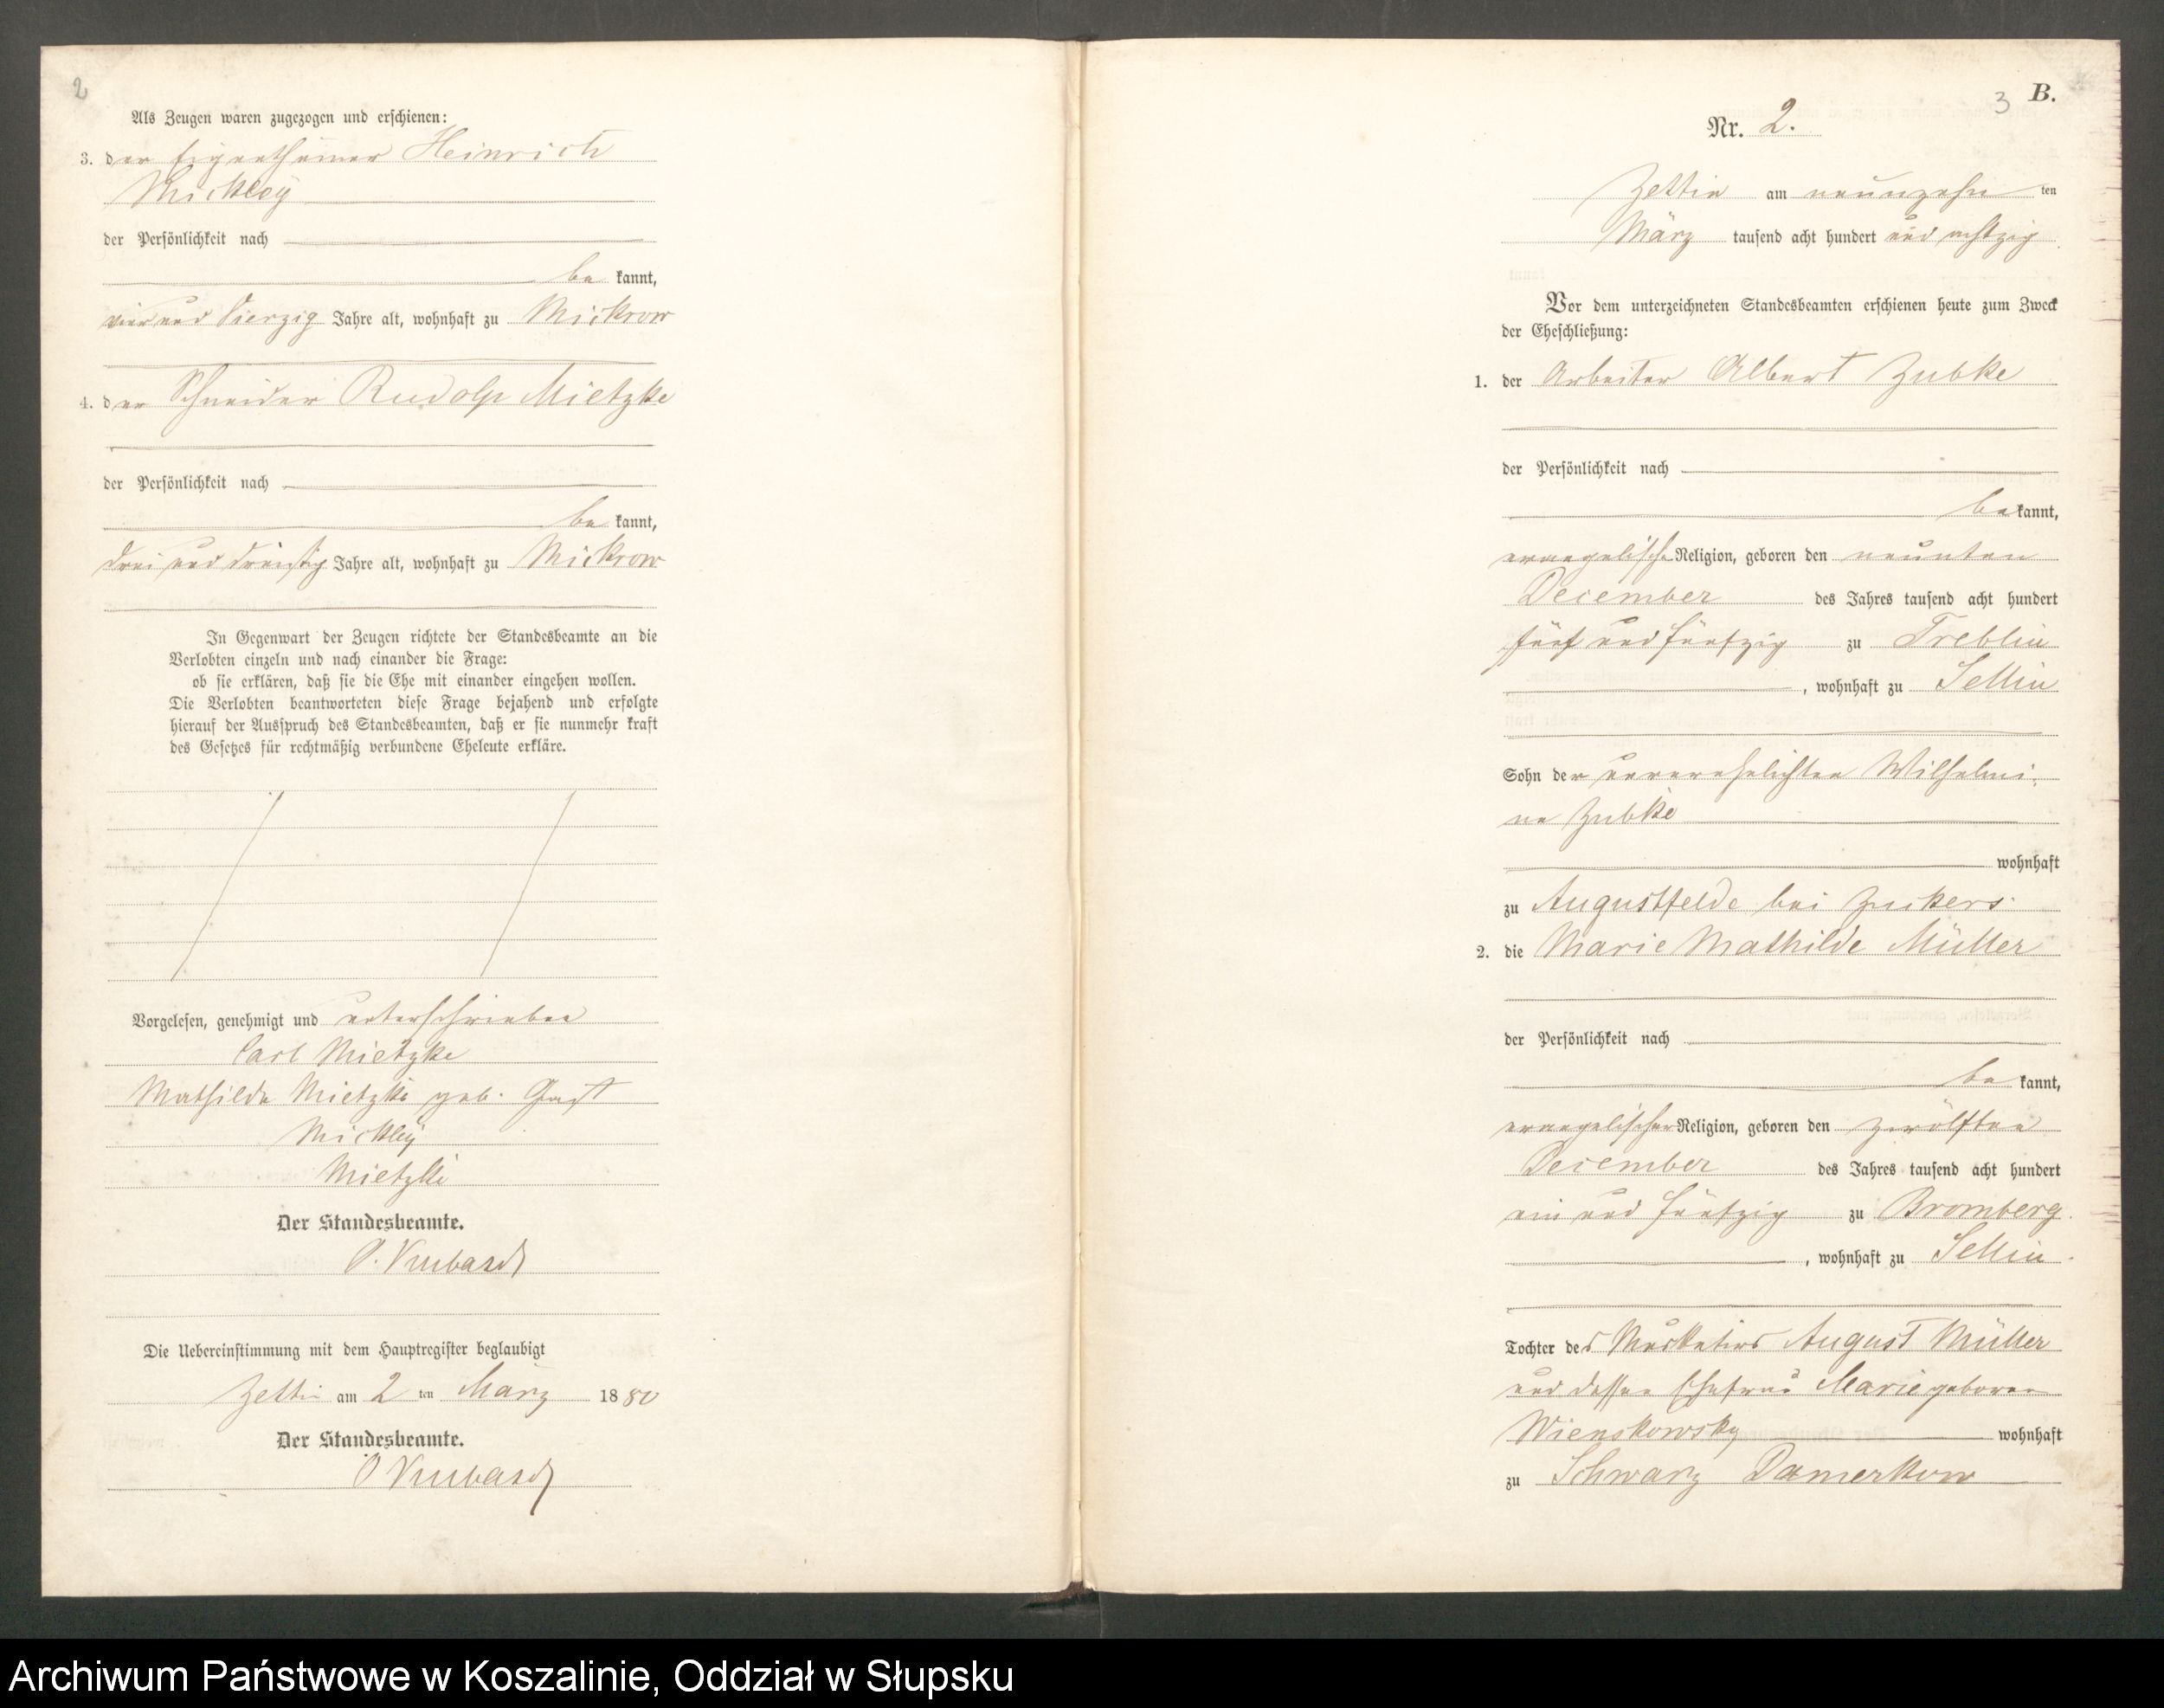 2
Als Zeugen waren zugezogen und erschienen:
3. der Eigenthümer Heinrich
Mickley
der Persönlichkeit nach
be kannt,
vier und vierzig Jahre alt, wohnhaft zu Mickrow
4. der Schneider Rudolp Mietzke
der Persönlichkeit nach
be kannt,
drei und dreißig Jahre alt, wohnhaft zu Mickrow
In Gegenwart der Zeugen richtete der Standesbeamte an die
Verlobten einzeln und nach einander die Frage:
ob sie erklären, daß sie die Ehe mit einander eingehen wollen.
Die Verlobten beantworteten diese Frage bejahend und erfolgte
hierauf der Ausspruch des Standesbeamten, daß er sie nunmehr kraft
des Gesetzes für rechtmäßig verbundene Eheleute erkläre.
Vorgelesen, genehmigt und unterschrieben
Carl Mietzke
Mathilde Mietzke geb. Gast
Mickley
Mietzke
Der Standesbeamte.
Die Uebereinstimmung mit dem Hauptregister beglaubigt
Zettin am 2 ten März 1880
Der Standesbeamte.
3 B.
Nr. 2.
Zettin am neunzehn ten
März tausend acht hundert und achtzig
Vor dem unterzeichneten Standesbeamten erschienen heute zum Zweck
der Eheschließung:
1. der Arbeiter Albert Zubke
der Persönlichkeit nach
be kannt,
evangelischer Religion, geboren den neunten
December des Jahres tausend acht hundert
fünf und fünfzig zu Treblin
, wohnhaft zu Sellin
Sohn der unverehelichten Wilhelmi-
ne Zubke
wohnhaft
zu Augustfelde bei Zuckers
2. die Marie Mathilde Müller
der Persönlichkeit nach
be kannt,
evangelischer Religion, geboren den zwölften
December des Jahres tausend acht hundert
ein und fünfzig zu Bromberg
, wohnhaft zu Sellin
Tochter des Musketirs August Müller
und dessen Ehefrau Marie geboren
Wienskowsky wohnhaft
zu Schwarz Damerkow
Archiwum Państwowe w Koszalinie, Oddział w Słupsku